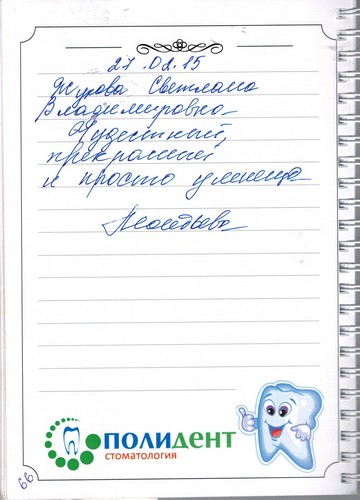 27.02.15
Жукова Светлана
Владимировна
Чудесный,
прекрасный
и просто умница
Леонтьева
ПОЛИДЕНТ
СТОМАТОЛОГИЯ
66